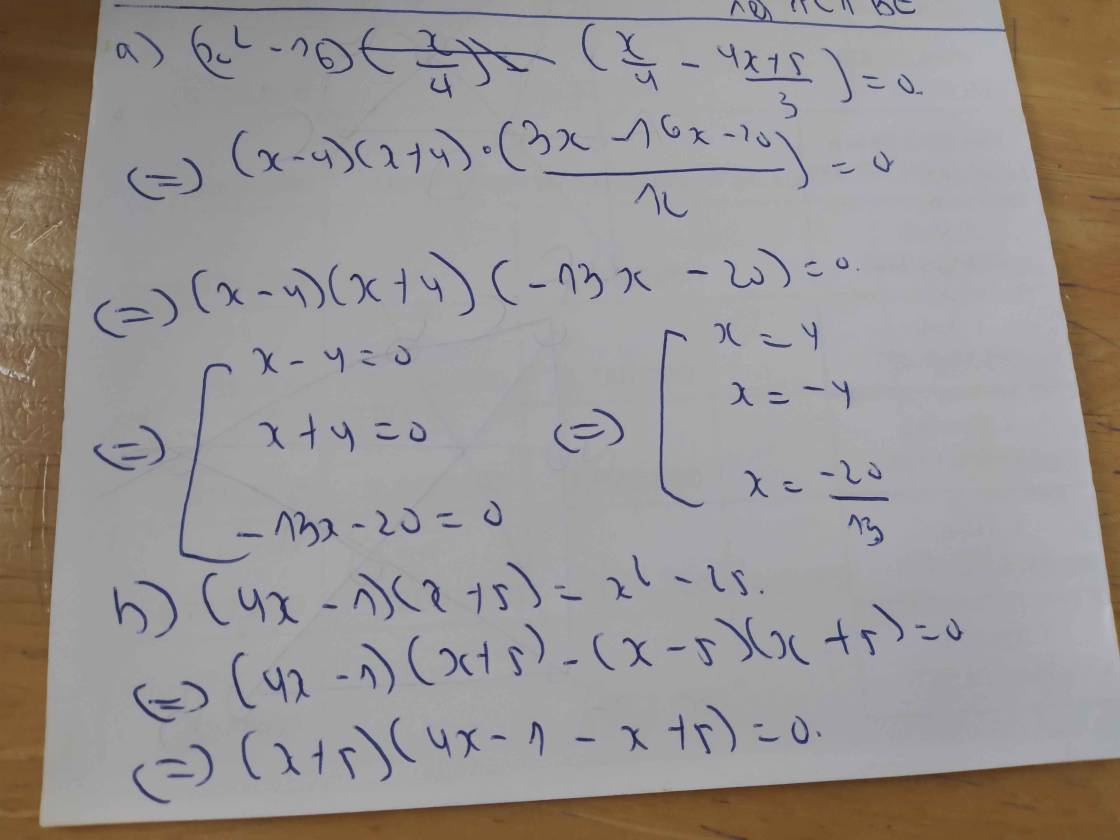 a) (x² - 16) (x/4 - (4x+5)/3) = 0.
(=) (x-4)(x+4)·((3x - 16x - 20)/12) = 0
(=) (x-4)(x+4)(-13x - 20) = 0.
(=) [ x - 4 = 0 (=) [ x = 4
x + 4 = 0 x = -4
-13x - 20 = 0 x = -20/13
b) (4x - 1)(x + 5) = x² - 25.
(=) (4x - 1)(x+5) - (x - 5)(x + 5) = 0
(=) (x+5)(4x - 1 - x + 5) = 0.